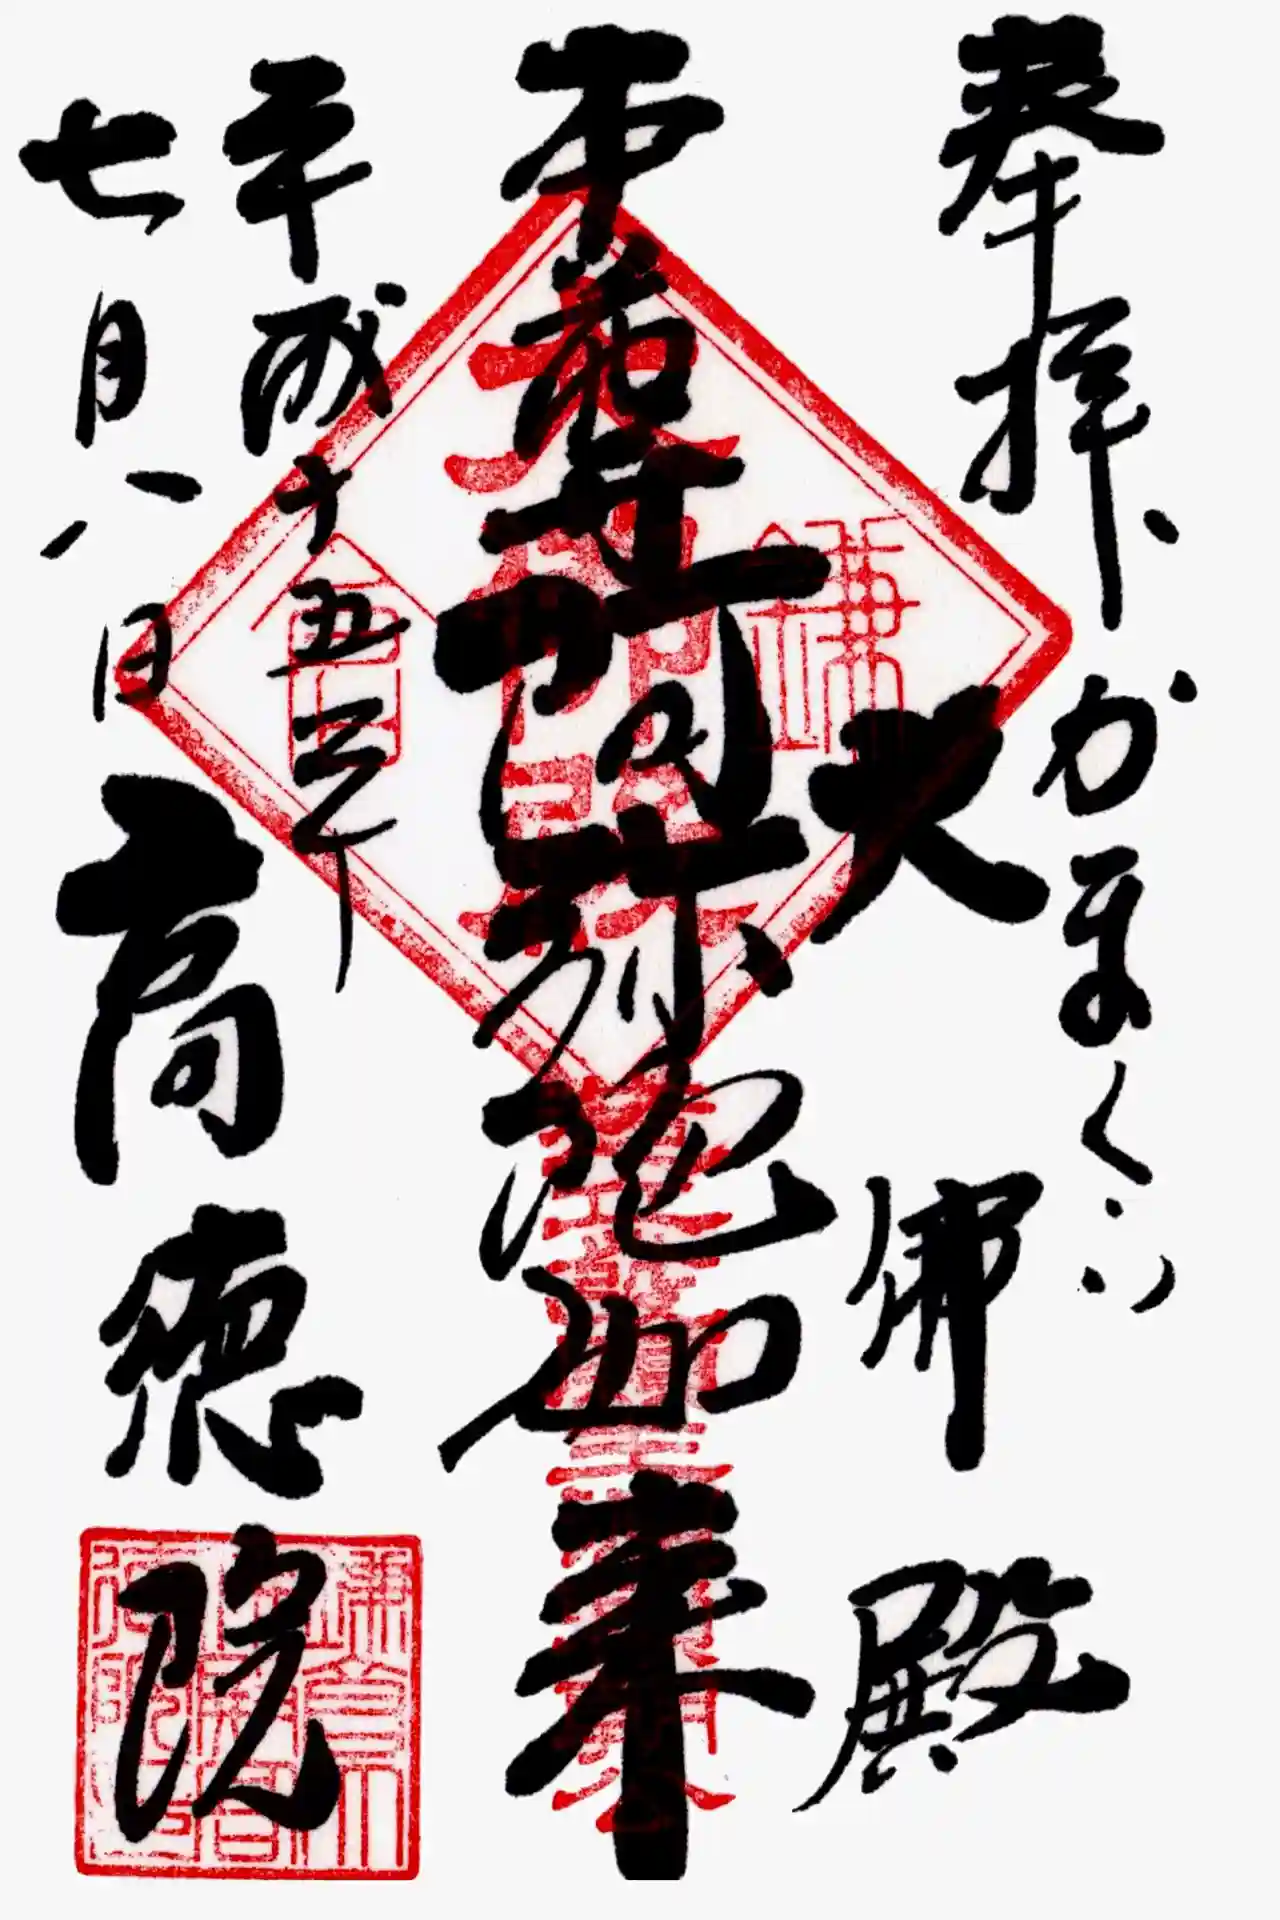 奉拝、かまくら
大佛殿
本尊阿弥陀如来
平成十五年
七月八日
高徳院
鎌倉